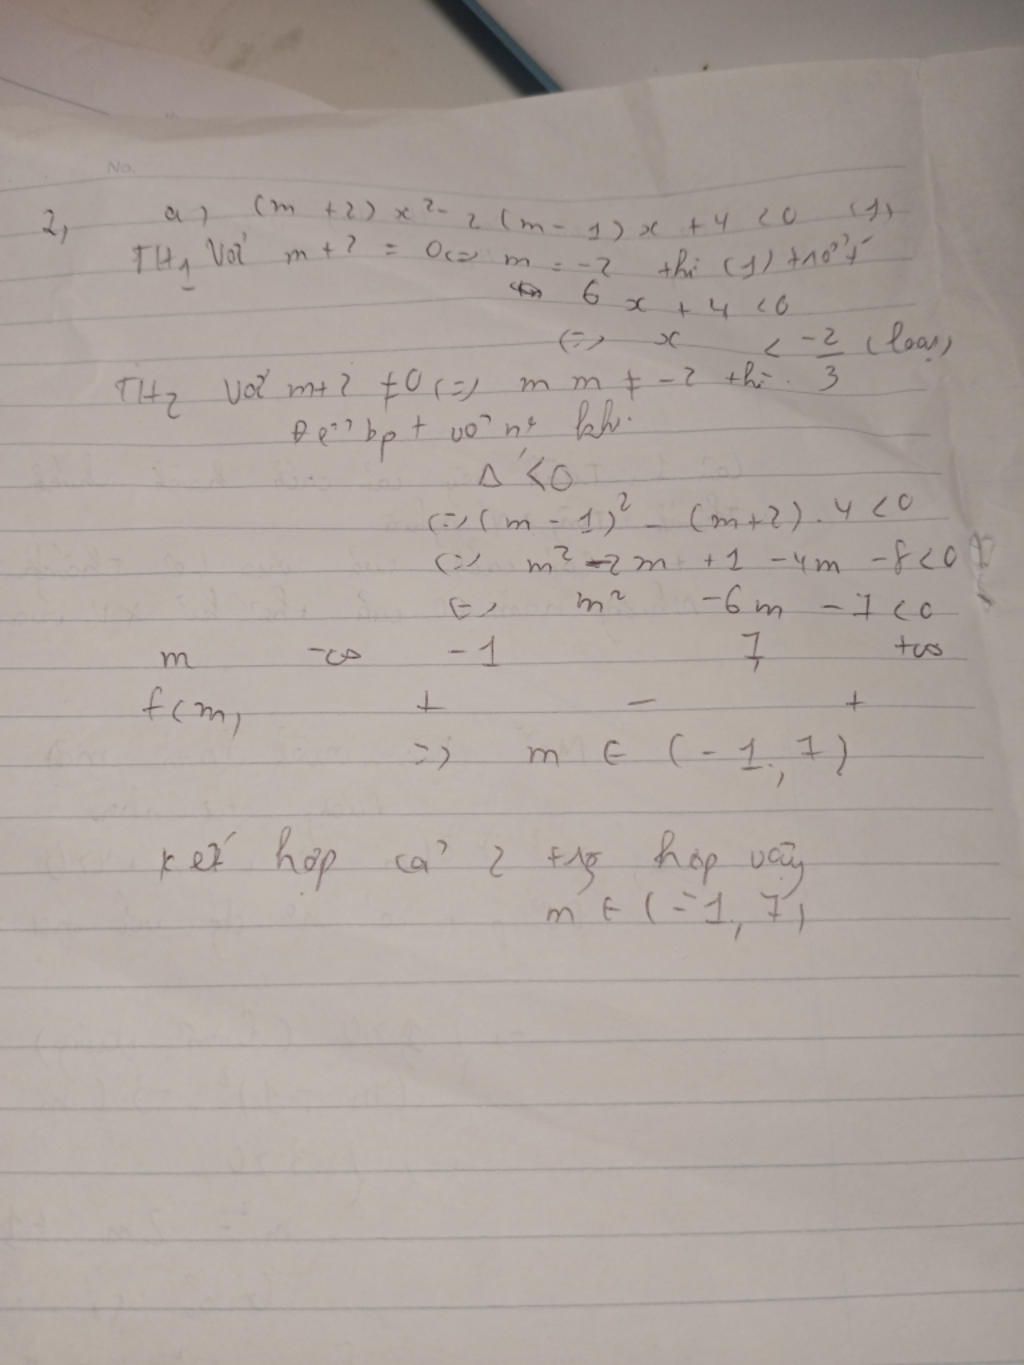 No.
2, a, (m + 2) x² - 2 (m - 1) x + 4 < 0 (1)
TH1 Với m + 2 = 0 <=> m = -2 thì (1) trở
6 x + 4 < 0
<=> x < -2/3 (loại)
TH2 Với m + 2 ≠ 0 <=> m m ≠ -2 thì.
Để bpt vô n° kh.
Δ' < 0
<=> (m - 1)² - (m + 2) . 4 < 0
<=> m² - 2 m + 1 - 4m - 8 < 0
<=> m² - 6 m - 7 < 0
m -∞ -1 7 +∞
f(m) + - +
=> m ∈ (-1, 7)
Kết hợp cả 2 trg hợp vậy
m ∈ (-1, 7)